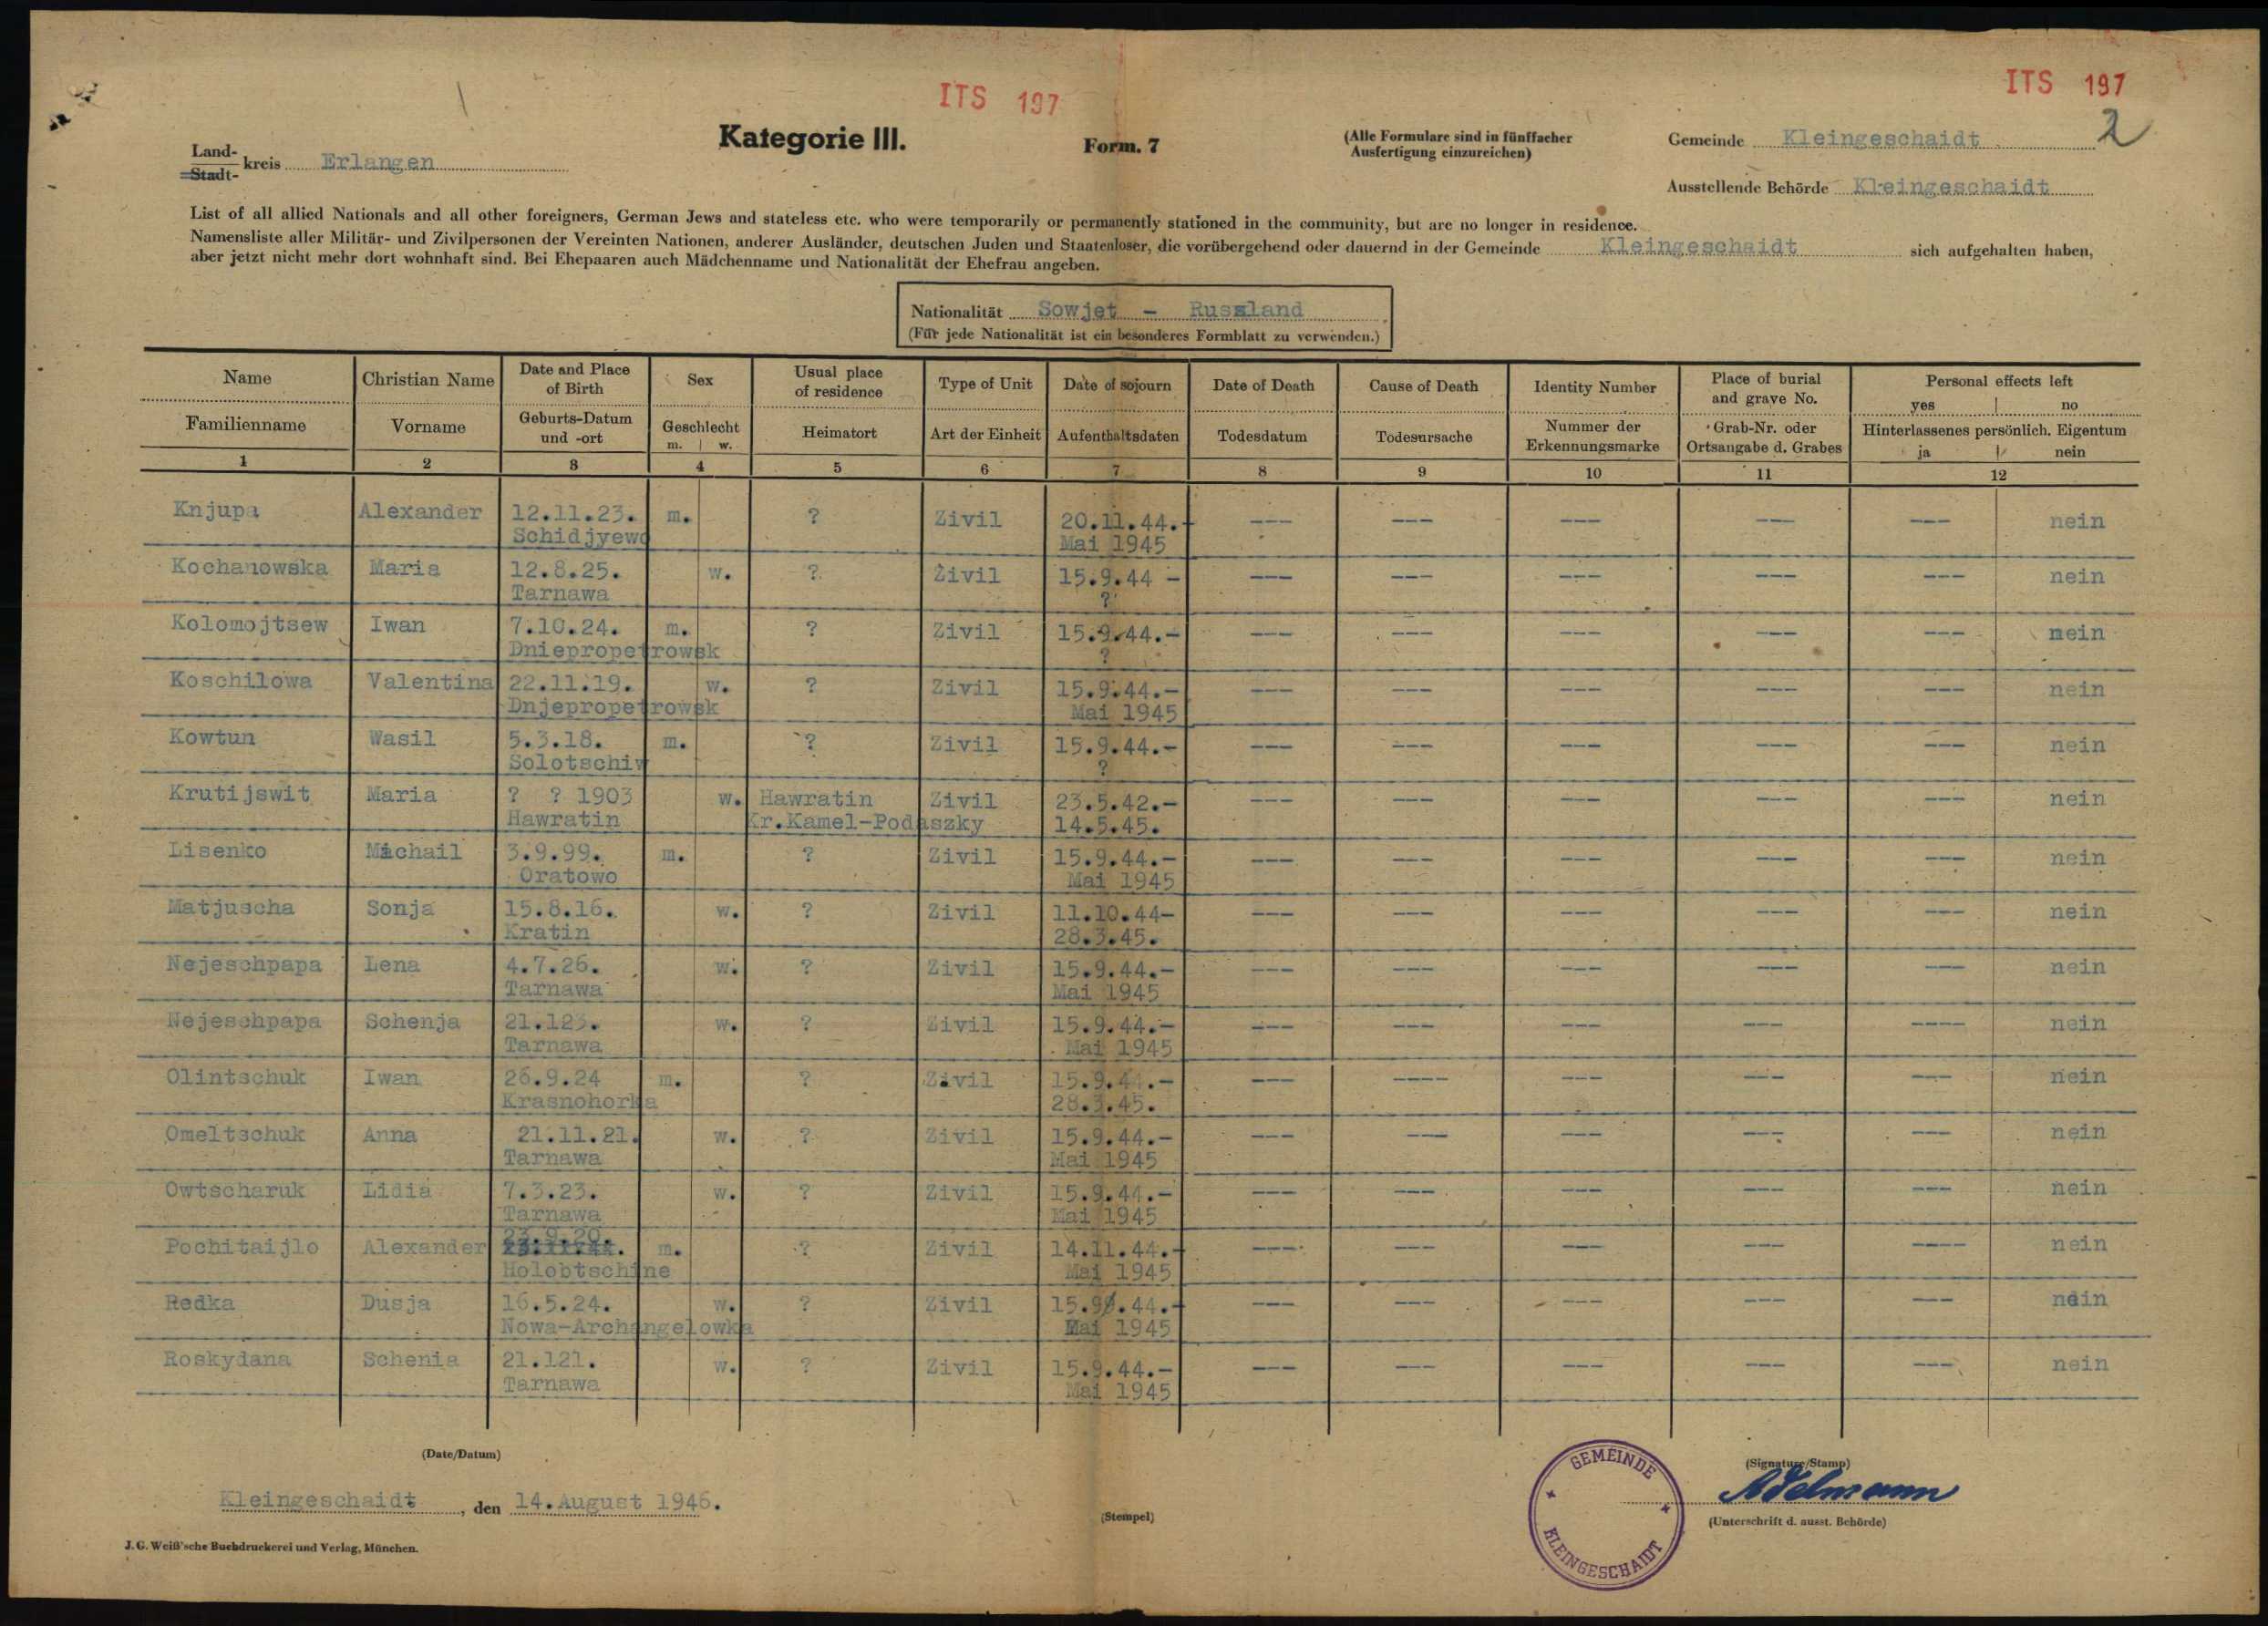 ITS 197
ITS 197
2
Kategorie III.
Form. 7
(Alle Formulare sind in fünffacher
Ausfertigung einzureichen)
Gemeinde Kleingeschaidt
Land-
Stadt- kreis Erlangen
Ausstellende Behörde Kleingeschaidt
List of all allied Nationals and all other foreigners, German Jews and stateless etc. who were temporarily or permanently stationed in the community, but are no longer in residence.
Namensliste aller Militär- und Zivilpersonen der Vereinten Nationen, anderer Ausländer, deutschen Juden und Staatenloser, die vorübergehend oder dauernd in der Gemeinde Kleingeschaidt sich aufgehalten haben,
aber jetzt nicht mehr dort wohnhaft sind. Bei Ehepaaren auch Mädchenname und Nationalität der Ehefrau angeben.
Nationalität Sowjet - Russland
(Für jede Nationalität ist ein besonderes Formblatt zu verwenden.)
Name Christian Name Date and Place of Birth Sex Usual place of residence Type of Unit Date of sojourn Date of Death Cause of Death Identity Number Place of burial and grave No. Personal effects left yes no
Familienname Vorname Geburts-Datum und -ort Geschlecht m. w. Heimatort Art der Einheit Aufenthaltsdaten Todesdatum Todesursache Nummer der Erkennungsmarke Grab-Nr. oder Ortsangabe d. Grabes Hinterlassenes persönlich. Eigentum ja nein
1 2 3 4 5 6 7 8 9 10 11 12
Knjupa Alexander 12.11.23. m. ? Zivil 20.11.44.- --- --- --- --- --- nein
Schidjyewo Mai 1945
Kochanowska Maria 12.8.25. w. ? Zivil 15.9.44 - --- --- --- --- --- nein
Tarnawa ?
Kolomojtsew Iwan 7.10.24. m. ? Zivil 15.9.44.- --- --- --- --- --- nein
Dniepropetrowsk ?
Koschilowa Valentina 22.11.19. w. ? Zivil 15.9.44.- --- --- --- --- --- nein
Dnjepropetrowsk Mai 1945
Kowtun Wasil 5.3.18. m. ? Zivil 15.9.44.- --- --- --- --- --- nein
Solotschiw ?
Krutijswit Maria ? ? 1903 w. Hawratin Zivil 23.5.42.- --- --- --- --- --- nein
Hawratin Kr.Kamel-Podaszky 14.5.45.
Lisenko Michail 3.9.99. m. ? Zivil 15.9.44.- --- --- --- --- --- nein
Oratowo Mai 1945
Matjuscha Sonja 15.8.16. w. ? Zivil 11.10.44- --- --- --- --- --- nein
Kratin 28.3.45.
Nejeschpapa Lena 4.7.26. w. ? Zivil 15.9.44.- --- --- --- --- --- nein
Tarnawa Mai 1945
Nejeschpapa Schenja 21.123. w. ? Zivil 15.9.44.- --- --- --- --- ---- nein
Tarnawa Mai 1945
Olintschuk Iwan 26.9.24 m. ? Zivil 15.9.44.- --- ---- --- --- --- nein
Krasnohorka 28.3.45.
Omeltschuk Anna 21.11.21. w. ? Zivil 15.9.44.- --- --- --- --- --- nein
Tarnawa Mai 1945
Owtscharuk Lidia 7.3.23. w. ? Zivil 15.9.44.- --- --- --- --- --- nein
Tarnawa Mai 1945
23.9.20.
Pochitaijlo Alexander m. ? Zivil 14.11.44.- --- --- --- --- --- nein
Holobtschine Mai 1945
Redka Dusja 16.5.24. w. ? Zivil 15.9.44.- --- --- --- --- --- nein
Nowa-Archangelowka Mai 1945
Roskydana Schenia 21.121. w. ? Zivil 15.9.44.- --- --- --- --- --- nein
Tarnawa Mai 1945
(Date/Datum)
(Signature/Stamp)
Kleingeschaidt, den 14.August 1946.
(Stempel)
GEMEINDE
KLEINGESCHAIDT
Adelmann
(Unterschrift d. ausst. Behörde)
J. G. Weiß'sche Buchdruckerei und Verlag, München.